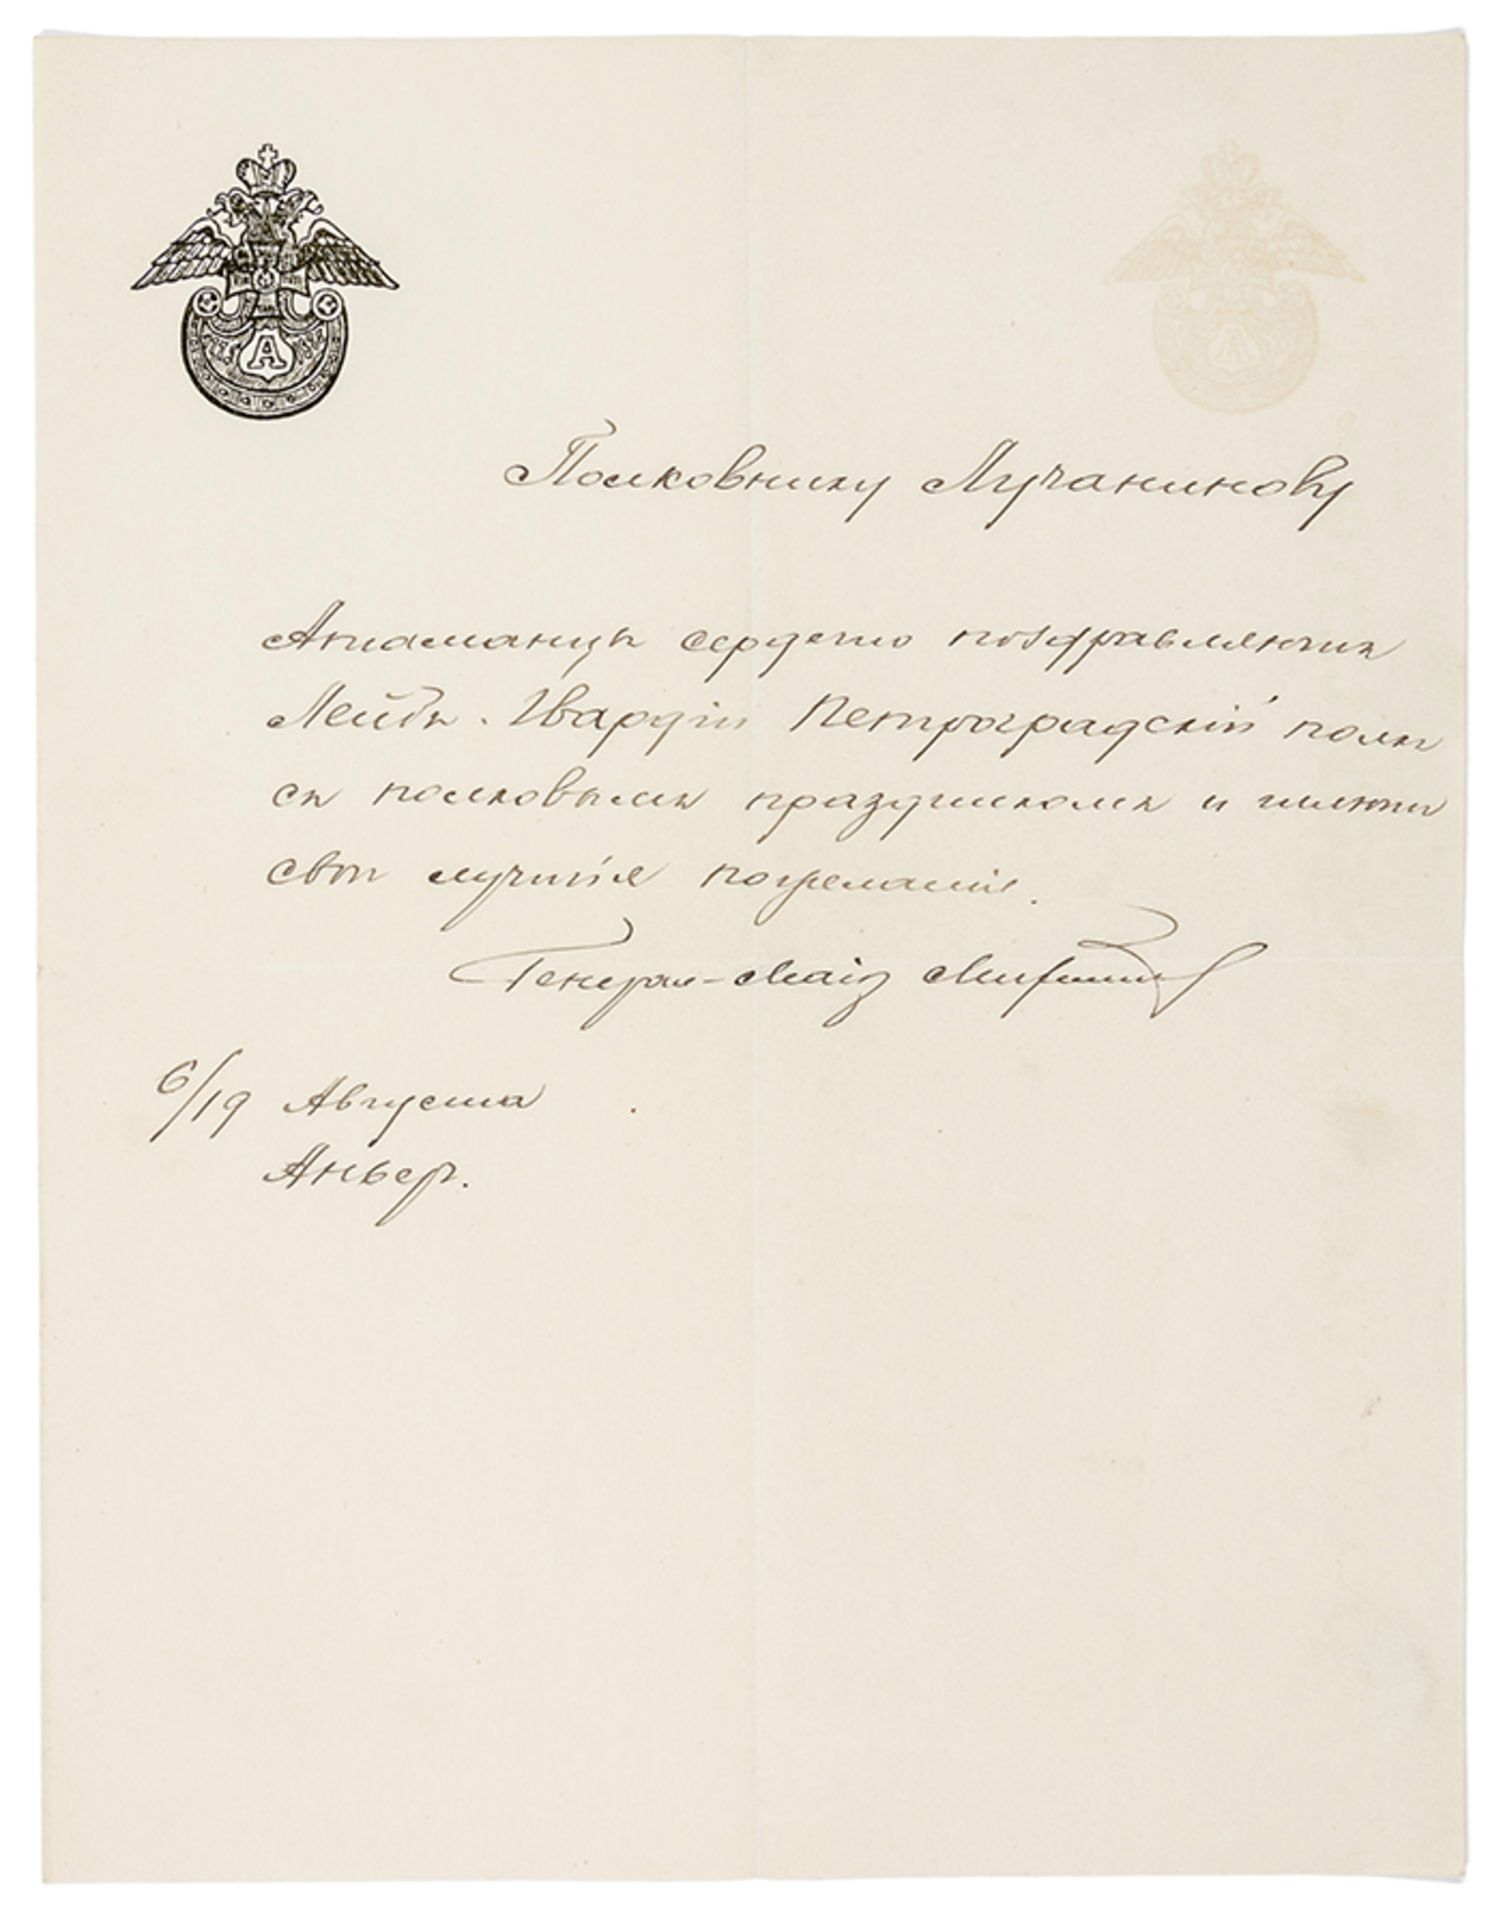 А
Полковнику Лучанинову
Атаманцы сердечно поздравляютъ
Лейбъ-Гвардіи Петроградскій полкъ
съ полковымъ праздникомъ и шлютъ
свои лучшія пожеланія.
Генерал-Маіор
6/19 Августа
Аньер.